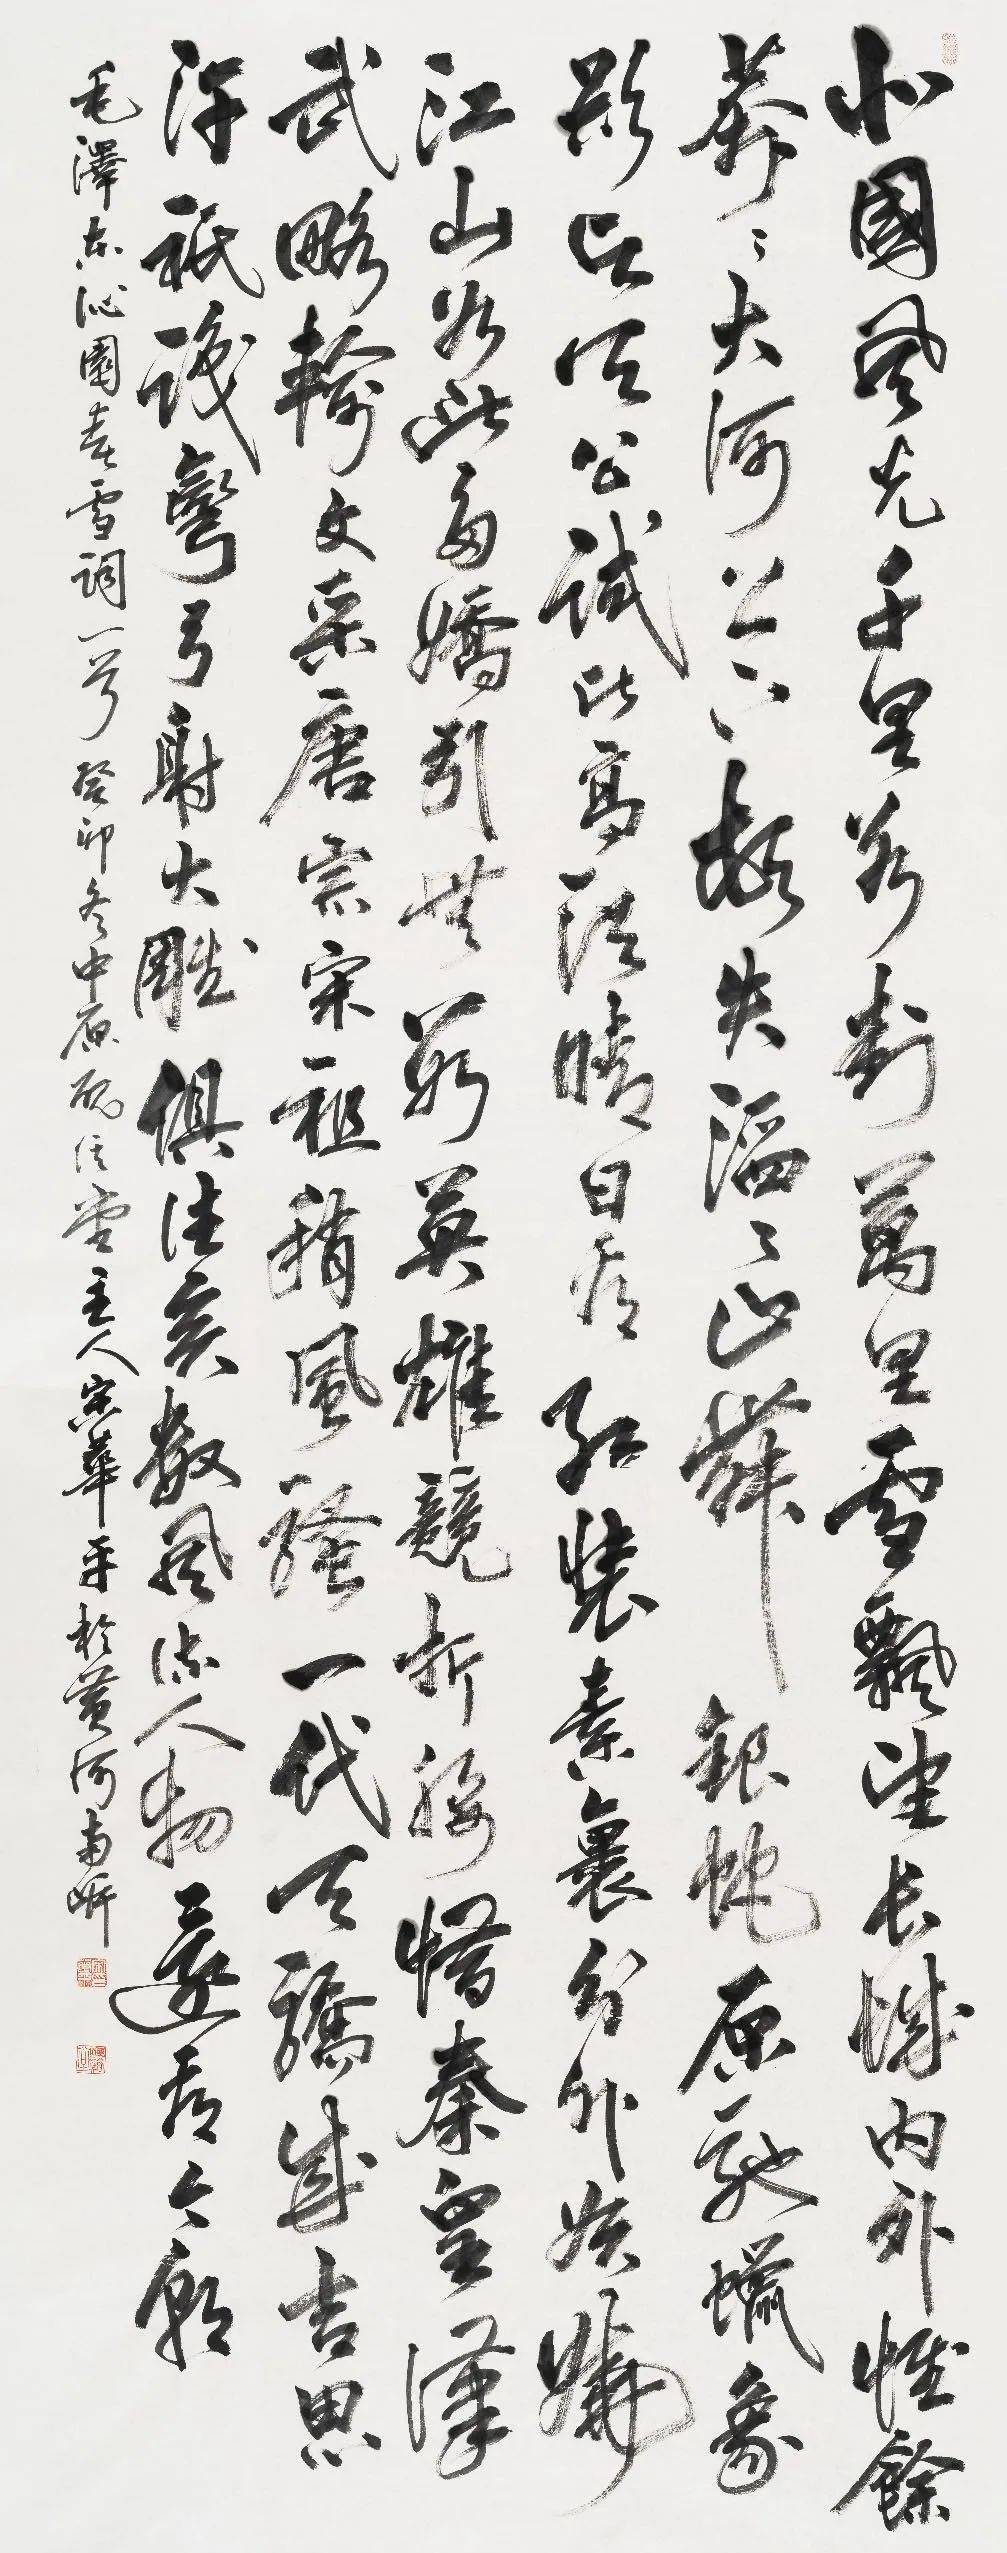 北國风光千里冰封萬里雪飄望長城内外惟餘
莽〻大河上下頓失滔〻山舞銀蛇原馳蠟象
欲與天公試比高須晴日看紅裝素裹分外妖嬈
江山如此多嬌引無數英雄競折腰惜秦皇漢
武略輸文采唐宗宋祖稍風騷一代天驕成吉思
汗祇識彎弓射大雕俱往矣數风流人物還看今朝
毛澤东沁園春雪詞一首癸卯冬中原堂主人宋華平於黄河南岸